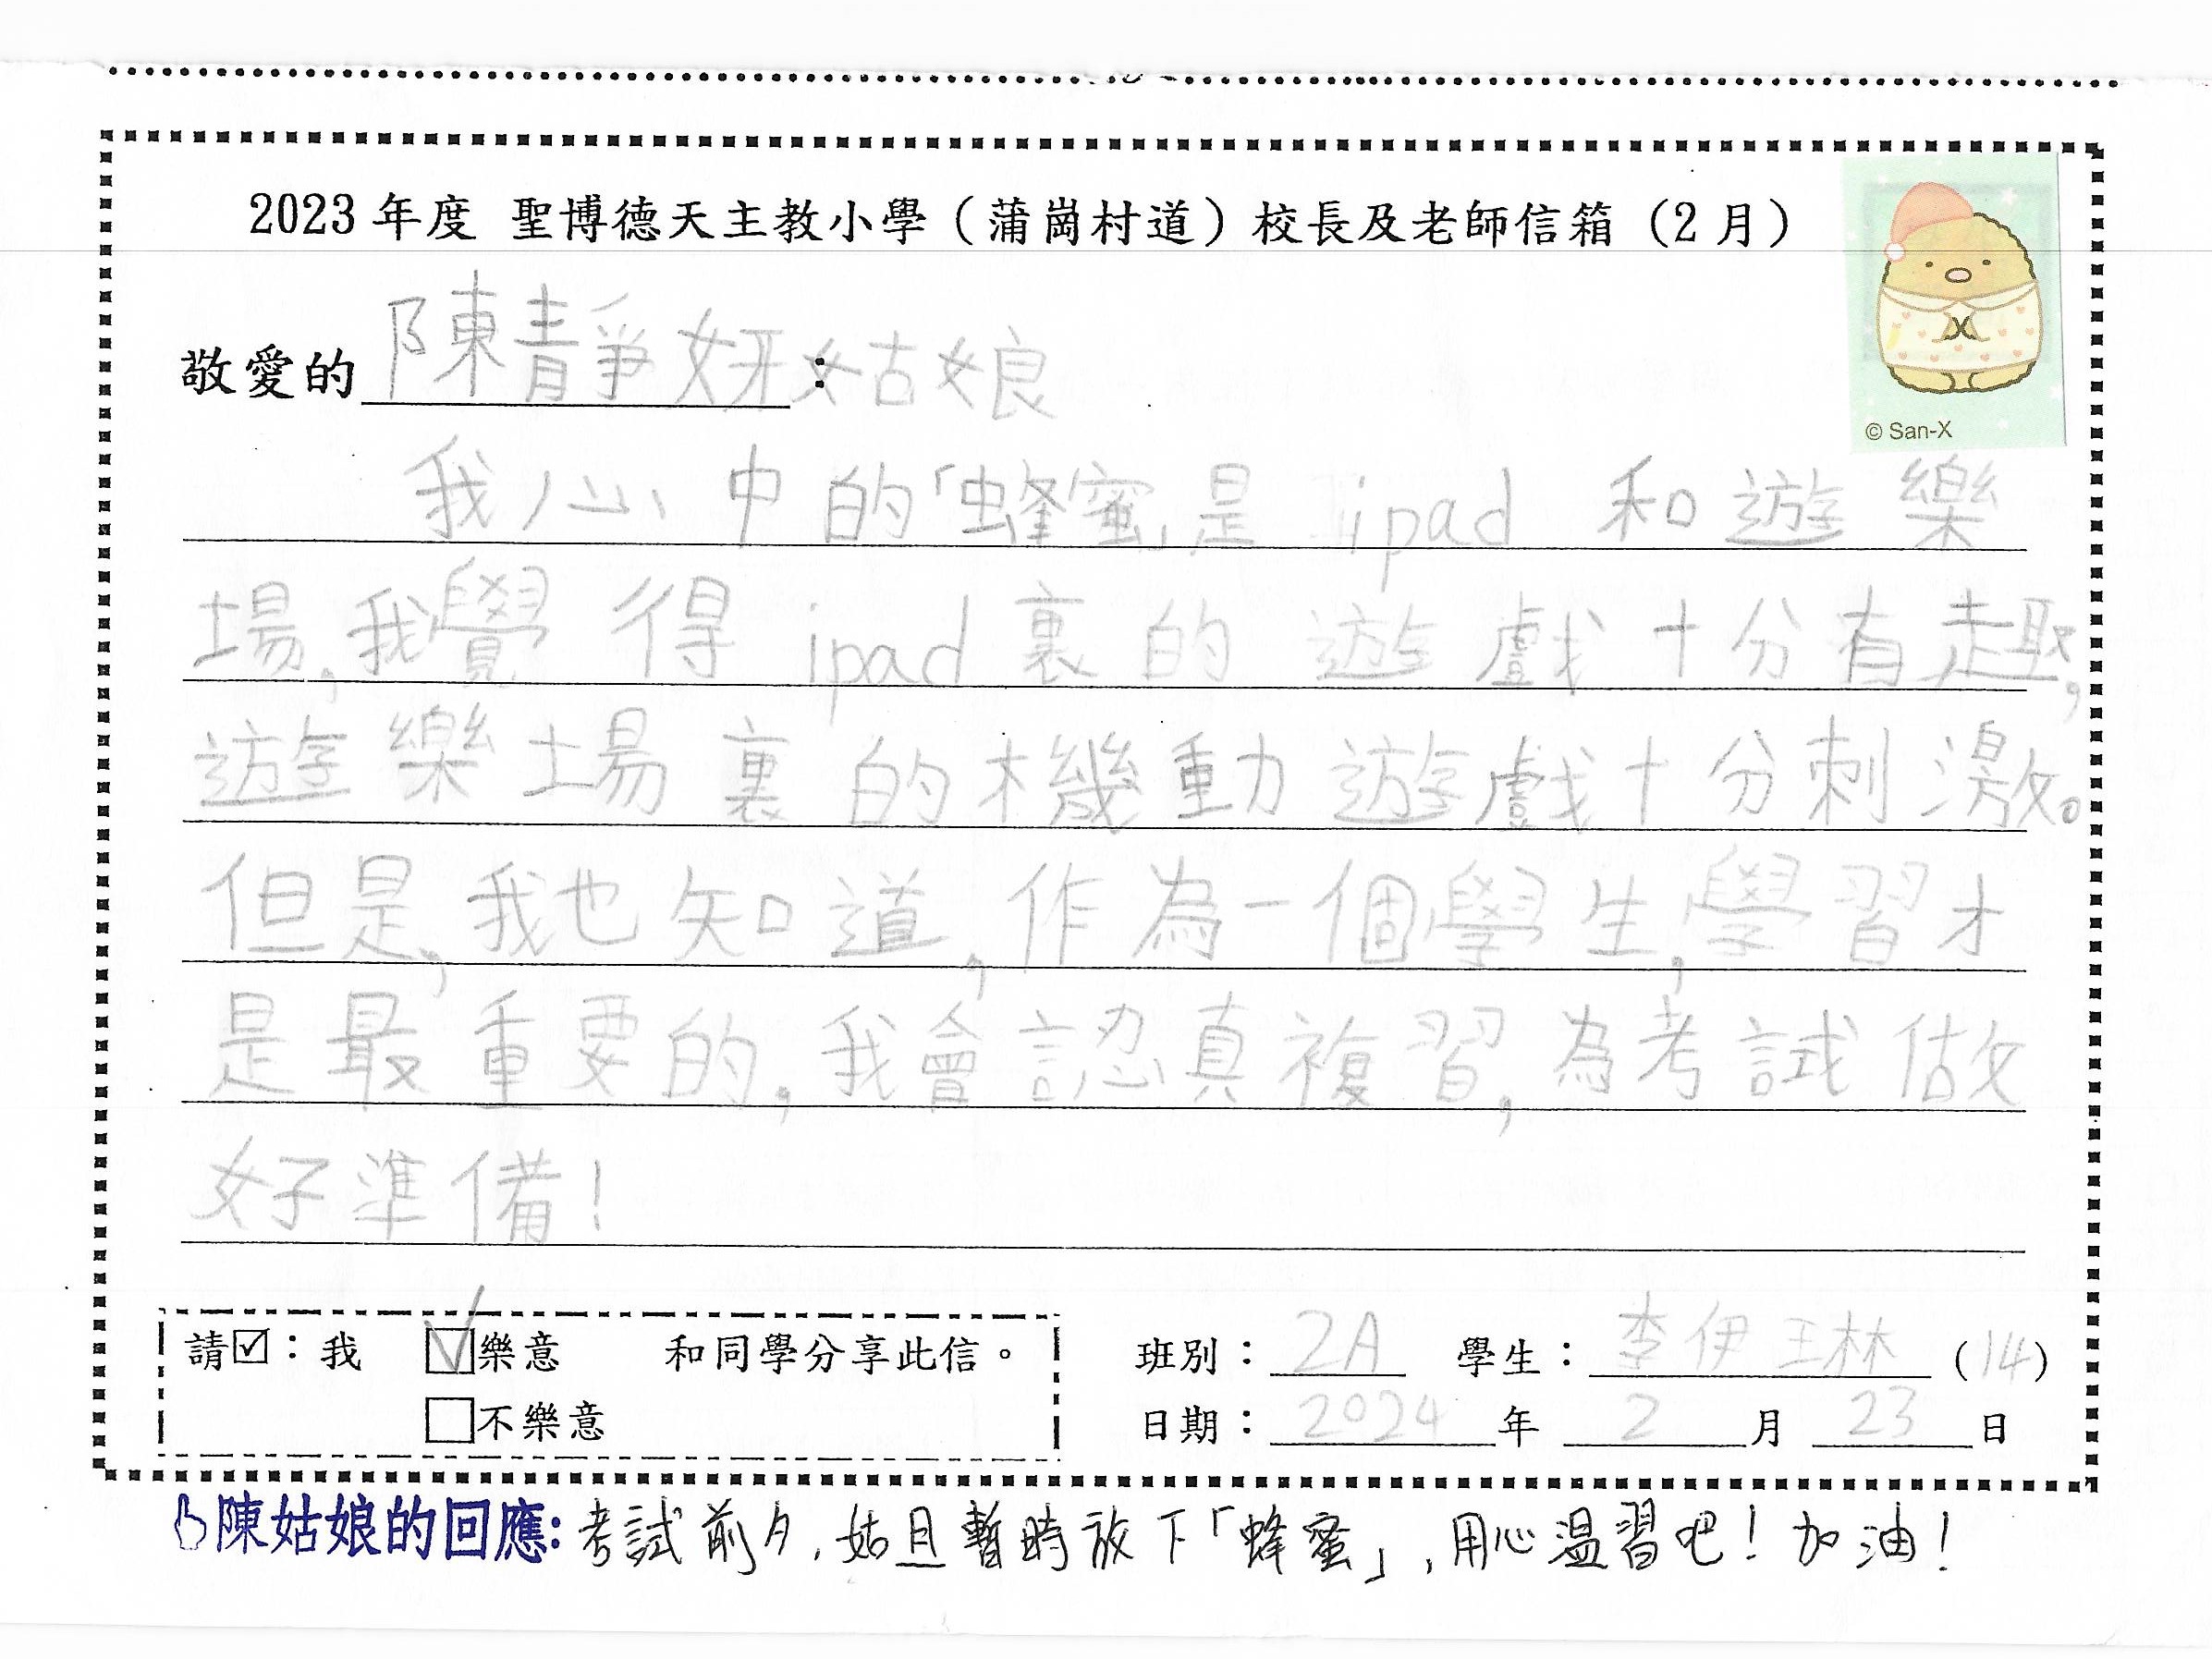 2023 年度 聖博德天主教小學（蒲崗村道）校長及老師信箱（2 月）
敬愛的 陳靜妍：姑娘
© San-X
我心中的「蜂蜜」是 ipad 和遊樂
場,我覺得 ipad 裏的遊戲十分有趣,
遊樂場裏的機動遊戲十分刺激。
但是,我也知道,作為一個學生,學習才
是最重要的,我會認真複習,為考試做
好準備!
請☑：我 ☑樂意 和同學分享此信。
□不樂意
班別：2A 學生：李伊琳 (14)
日期：2024 年 2 月 23 日
陳姑娘的回應: 考試前夕,姑且暫時放下「蜂蜜」,用心溫習吧! 加油!